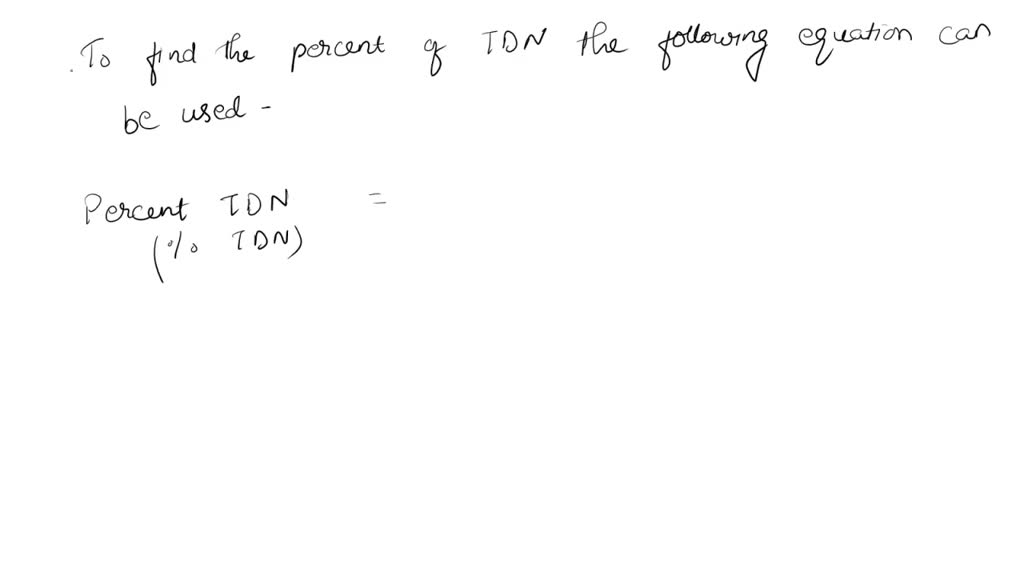 .To find the percent of TDN the following equation can
be used -
Percent TDN =
(% TDN)